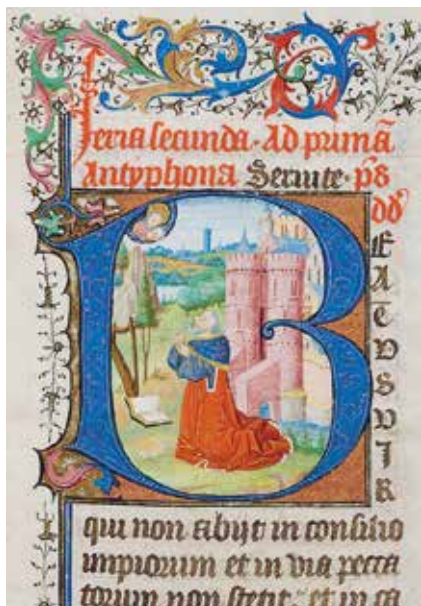 Feria secunda. Ad primā
Antyphona Seruite. ps
dd
B
EATUS VIR
qui non abijt in consilio
impiorum et in via pecca
torum non stetit. et in ca